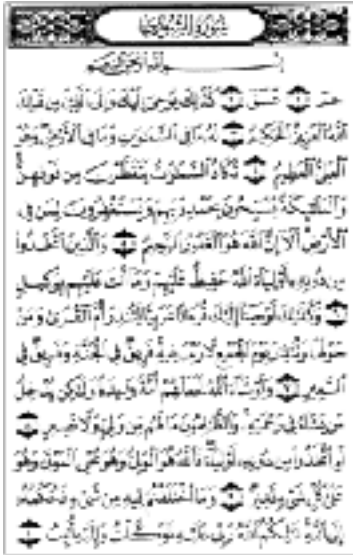 سورة الشورى
بسم الله الرحمن الرحيم
حم ۝ عسق ۝ كذلك يوحي إليك وإلى الذين من قبلك
الله العزيز الحكيم ۝ له ما في السموات وما في الأرض وهو
العلي العظيم ۝ تكاد السموات يتفطرن من فوقهن
والملائكة يسبحون بحمد ربهم ويستغفرون لمن في
الأرض ألا إن الله هو الغفور الرحيم ۝ والذين اتخذوا
من دونه أولياء الله حفيظ عليهم وما أنت عليهم بوكيل
۝ وكذلك أوحينا إليك قرآنا عربيا لتنذر أم القرى ومن
حولها وتنذر يوم الجمع لا ريب فيه فريق في الجنة وفريق في
السعير ۝ ولو شاء الله لجعلهم أمة واحدة ولكن يدخل
من يشاء في رحمته والظالمون ما لهم من ولي ولا نصير ۝
أم اتخذوا من دونه أولياء فالله هو الولي وهو يحي الموتى وهو
على كل شيء قدير ۝ وما اختلفتم فيه من شيء فحكمه
إلى الله ذلكم الله ربي عليه توكلت وإليه أنيب ۝